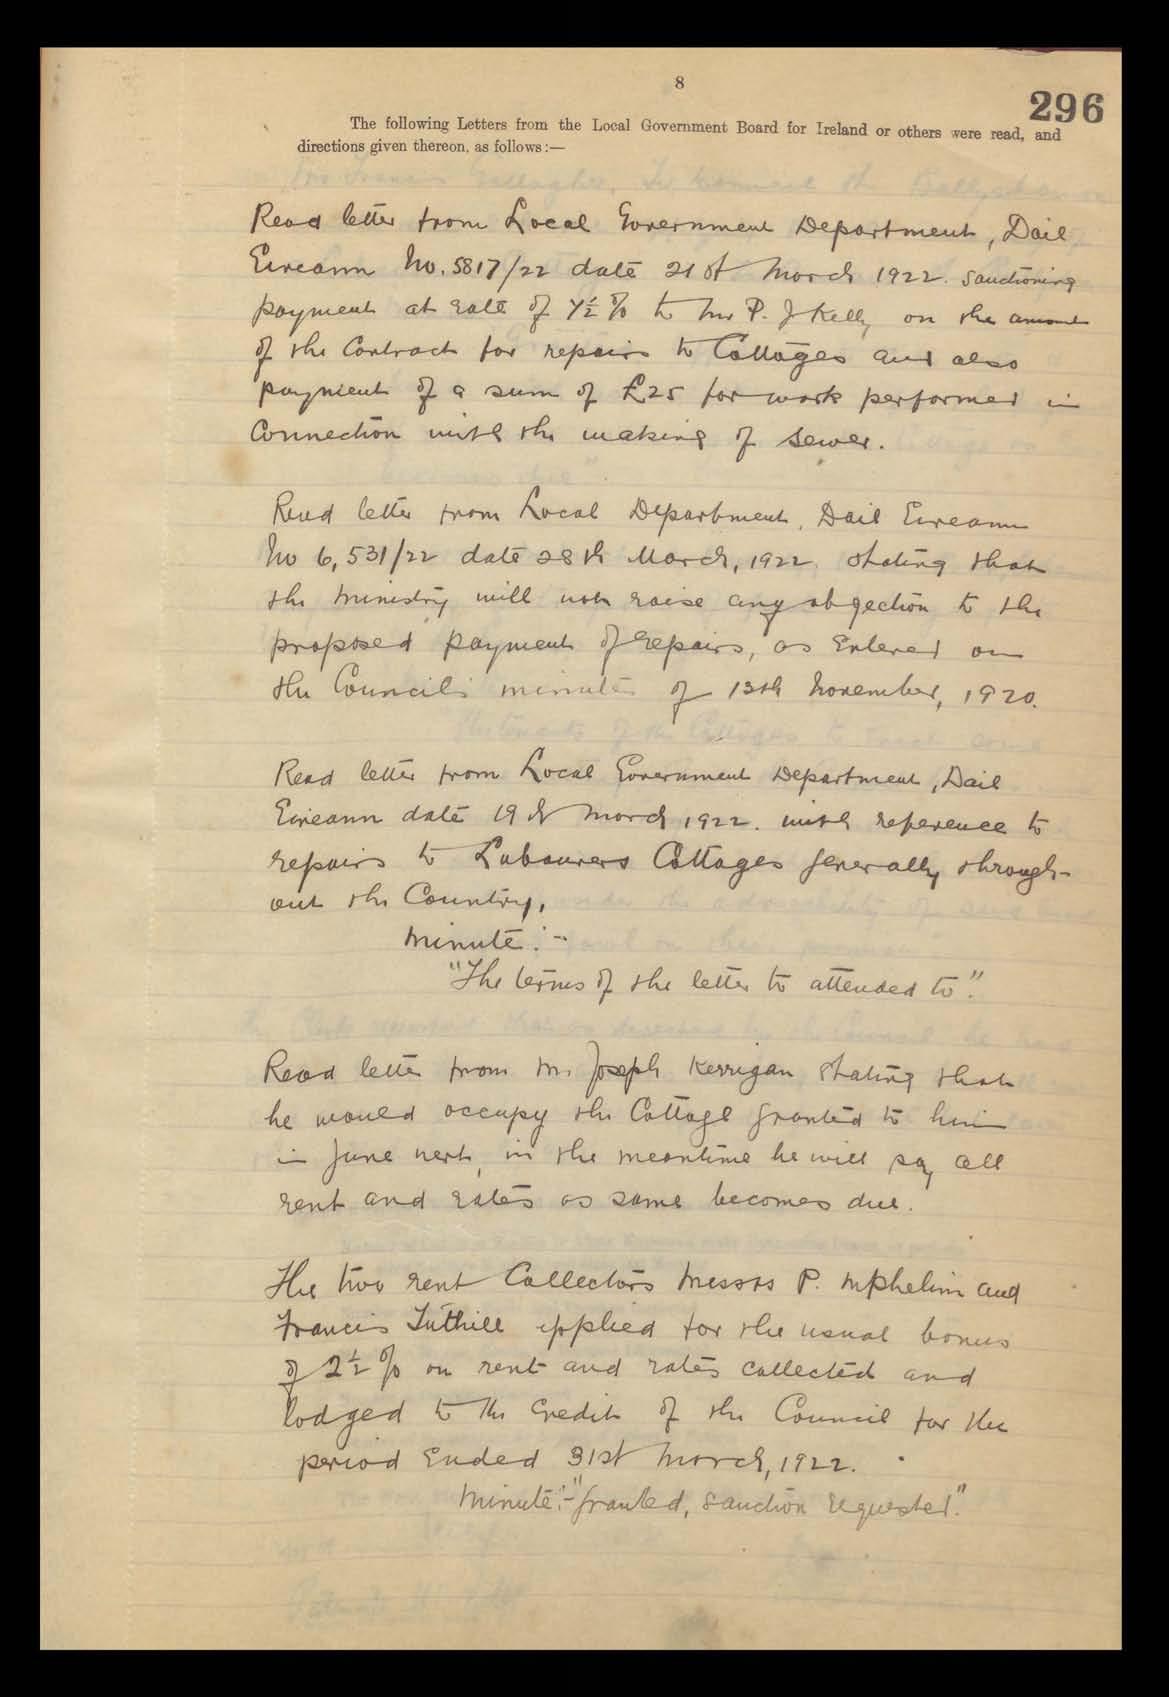 8
296
The following Letters from the Local Government Board for Ireland or others were read, and
directions given thereon, as follows:—
Read letter from Local Government Department, Dail
Eireann No. 5817/22 date 21st March 1922. sanctioning
payment at rate of 7½% to Mr P. J Kelly on the amount
of the Contract for repairs to Cottages and also
payment of a sum of £25 for work performed in
Connection with the making of sewer.
Read letter from Local Department, Dail Eireann
No 6,531/22 date 28th March, 1922. stating that
the Ministry will not raise any objection to the
proposed payment of repairs, as Entered on
the Council's minutes of 13th November, 1920.
Read letter from Local Government Department, Dail
Eireann date 19th March, 1922. with reference to
repairs to Labourers Cottages generally through-
out the Country,
Minute:-
"The terms of the letter to attended to".
Read letter from Mr Joseph Kerrigan stating that
he would occupy the Cottage granted to him
in June next, in the meantime he will pay all
rent and rates as same becomes due.
The two rent Collectors Messrs P. McPhelim and
Francis Tuthill applied for the usual bonus
of 2½% on rent and rates collected and
lodged to the Credit of the Council for the
period Ended 31st March, 1922.
Minute:- "Granted, sanction requested."